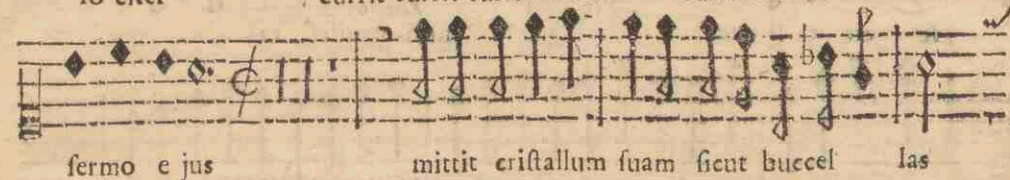 ſermo e jus mittit criſtallum ſuam ſicut buccel las